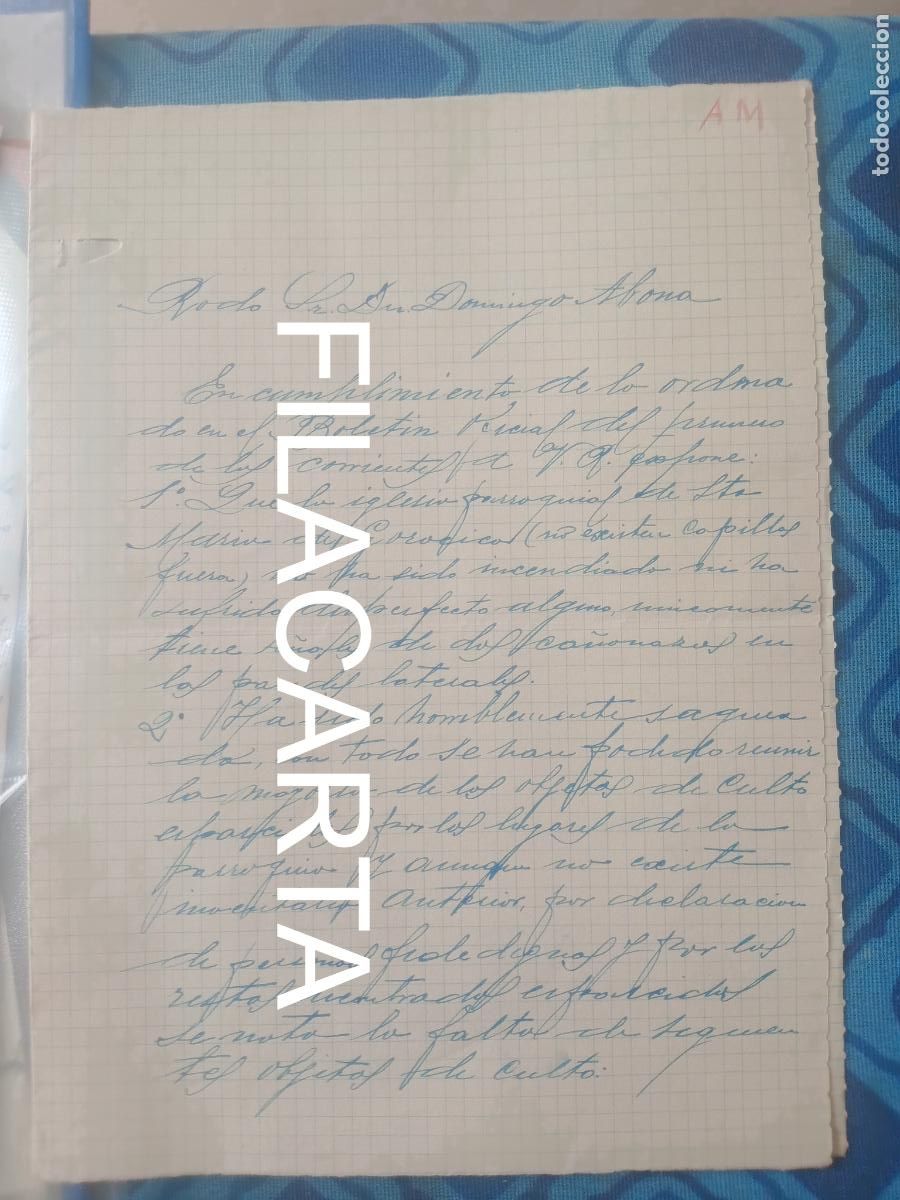 AM
todocoleccion
Rvdo Sr. Dn. Domingo Abona
En cumplimiento de lo ordena
do en el Boletin Oficial del primero
de los corrientes a V. R. expone:
1º. Que la iglesia parroquial de Sta
Maria de (no existen capillas
fuera) no ha sido incendiada ni ha
sufrido desperfecto alguno, unicamente
tiene de dos cañonazos en
las paredes laterales.
2º Ha sido horriblemente saquea
da, con todo se han podido reunir
la mayoria de los objetos de culto
esparcidos por los lugares de la
parroquia y aunque no existe
inventario anterior, por declaracion
de personas fidedignas y por los
restos encontrados esparcidos
se nota la falta de siguien
tes objetos de culto:
FILACARTA